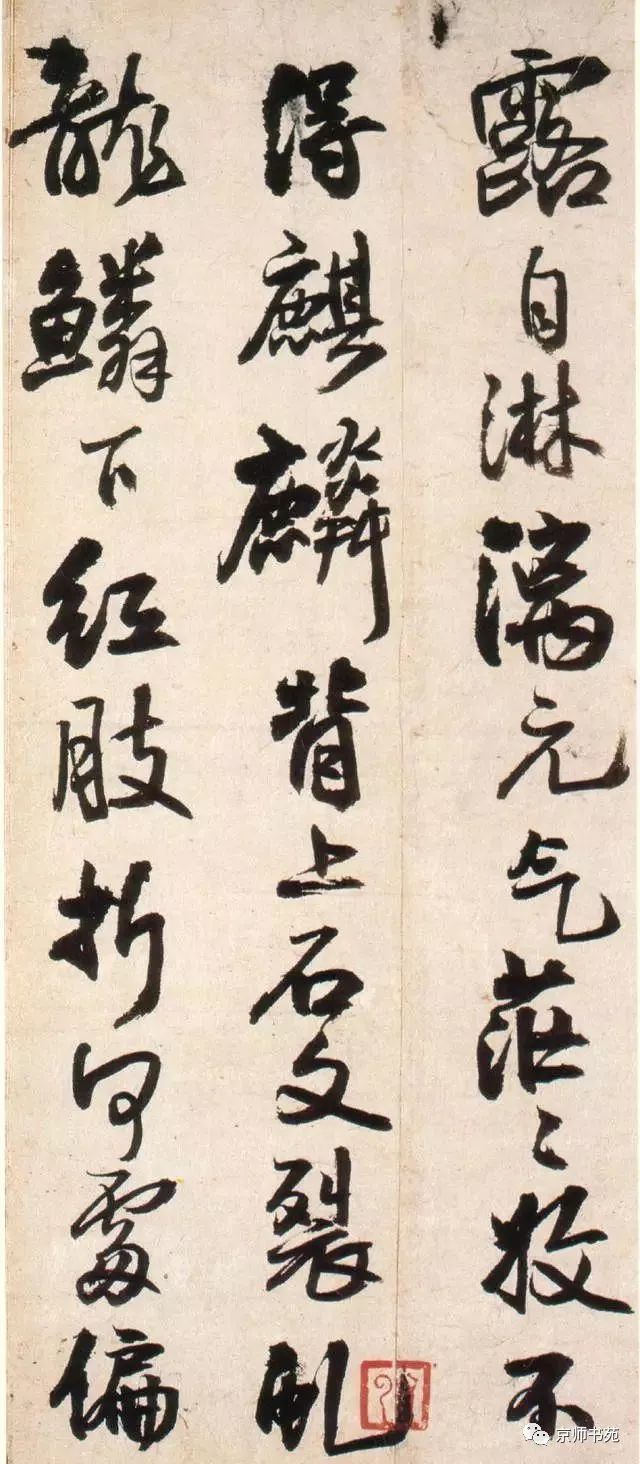 露自淋漓元气茫々收不
得麒麟背上石文裂虬
龍鱗下紅肢折何處偏
京师书苑